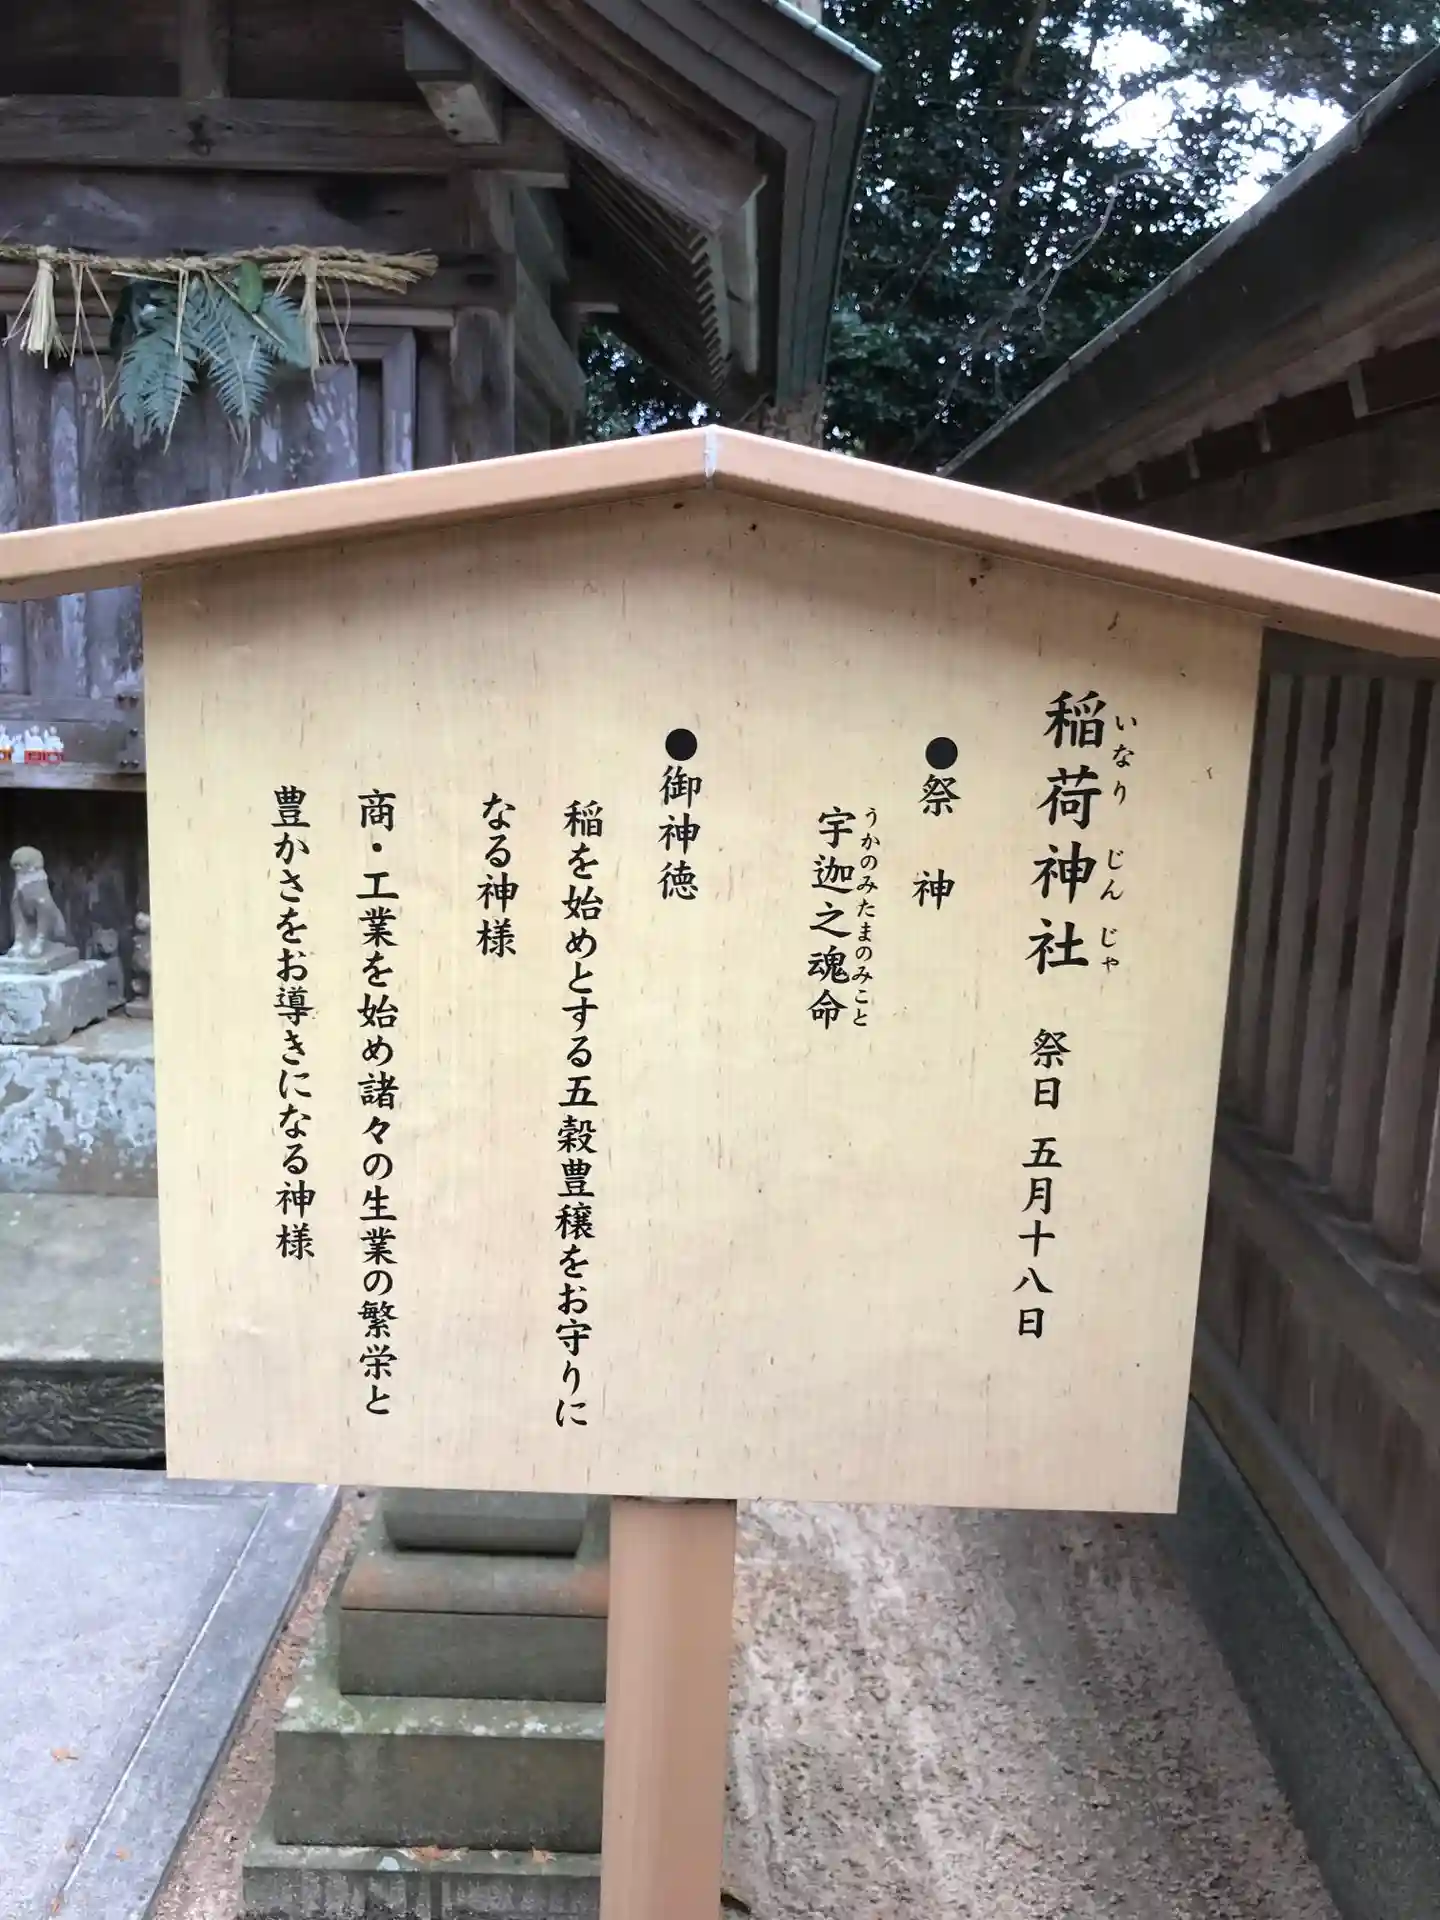 稲荷神社 祭日 五月十八日
いなり じんじゃ
●祭 神
宇迦之魂命
うかのみたまのみこと
●御神徳
稲を始めとする五穀豊穣をお守りに
なる神様
商・工業を始め諸々の生業の繁栄と
豊かさをお導きになる神様